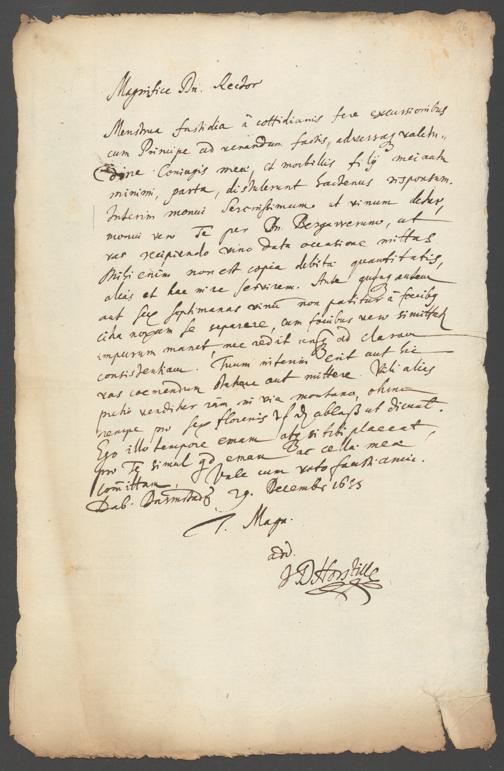 Magnifice Dn. Rector
Menstrua fastidia à cottidianis fere excursionibus
cum Principe ad venandum factis, adversas valetu-
dine Coniugis meae, et morbillis filij mei natu
minimi, parta, distulerunt hactenus responsum.
Interim monui Serenissimum ut vinum detur,
monui vero Te per Dn. ut
vas recipiendo vino data occasione mittas
Mihi enim non est copia debitae quantitatis,
alias et hac in re servirem. Ante quinq autem
aut sex septimanas vinum non patitur à foecibus
citra noxam se separare, cum foecibus vero simittet
impurum manet, nec redit ad claram
consistentiam. Tuum interim erit aut hic
vas coemendum aut mittere. Vili alias
pretio venditur iam in via montana, ohma
nempe pro sex florenis ut dicunt.
Ego illo tempore emam atq si tibi placeat,
pro Te simul emam hac cellae meae
committam. Vale cum voto
Dab. Darmstadt 29. Decembr 1633
T. Magn.
add.